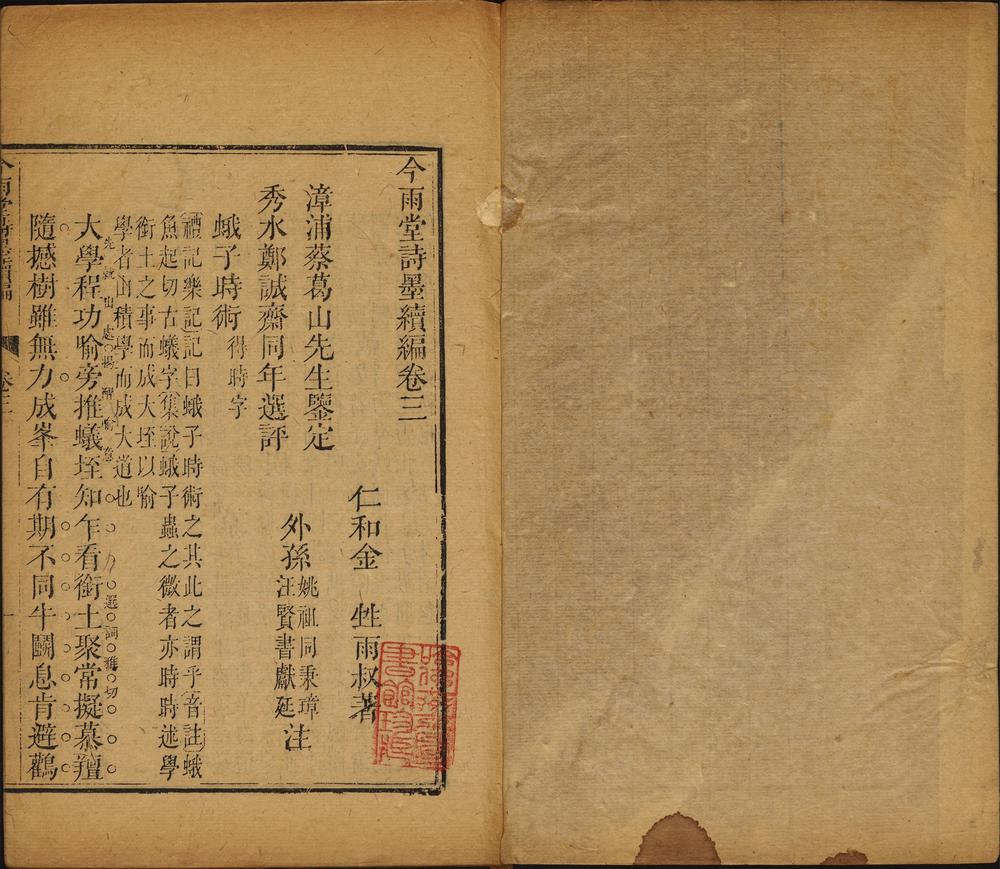 今雨堂詩墨續編卷三
仁和金甡雨叔著
漳浦蔡葛山先生鑒定
外孫姚祖同秉璋汪賢書獻延注
秀水鄭誠齋同年選評
蛾子時術得時字
禮記樂記記曰蛾子時術之其此之謂乎音註蛾
魚起切古蟻字集說蛾子蟲之微者亦時時述學
銜土之事而成大垤以喻
學者由積學而成大道也
大學程功喻旁推蟻垤知乍看銜土聚常擬慕羶
隨撼樹雖無力成峯自有期不同牛鬬息肯避鸛